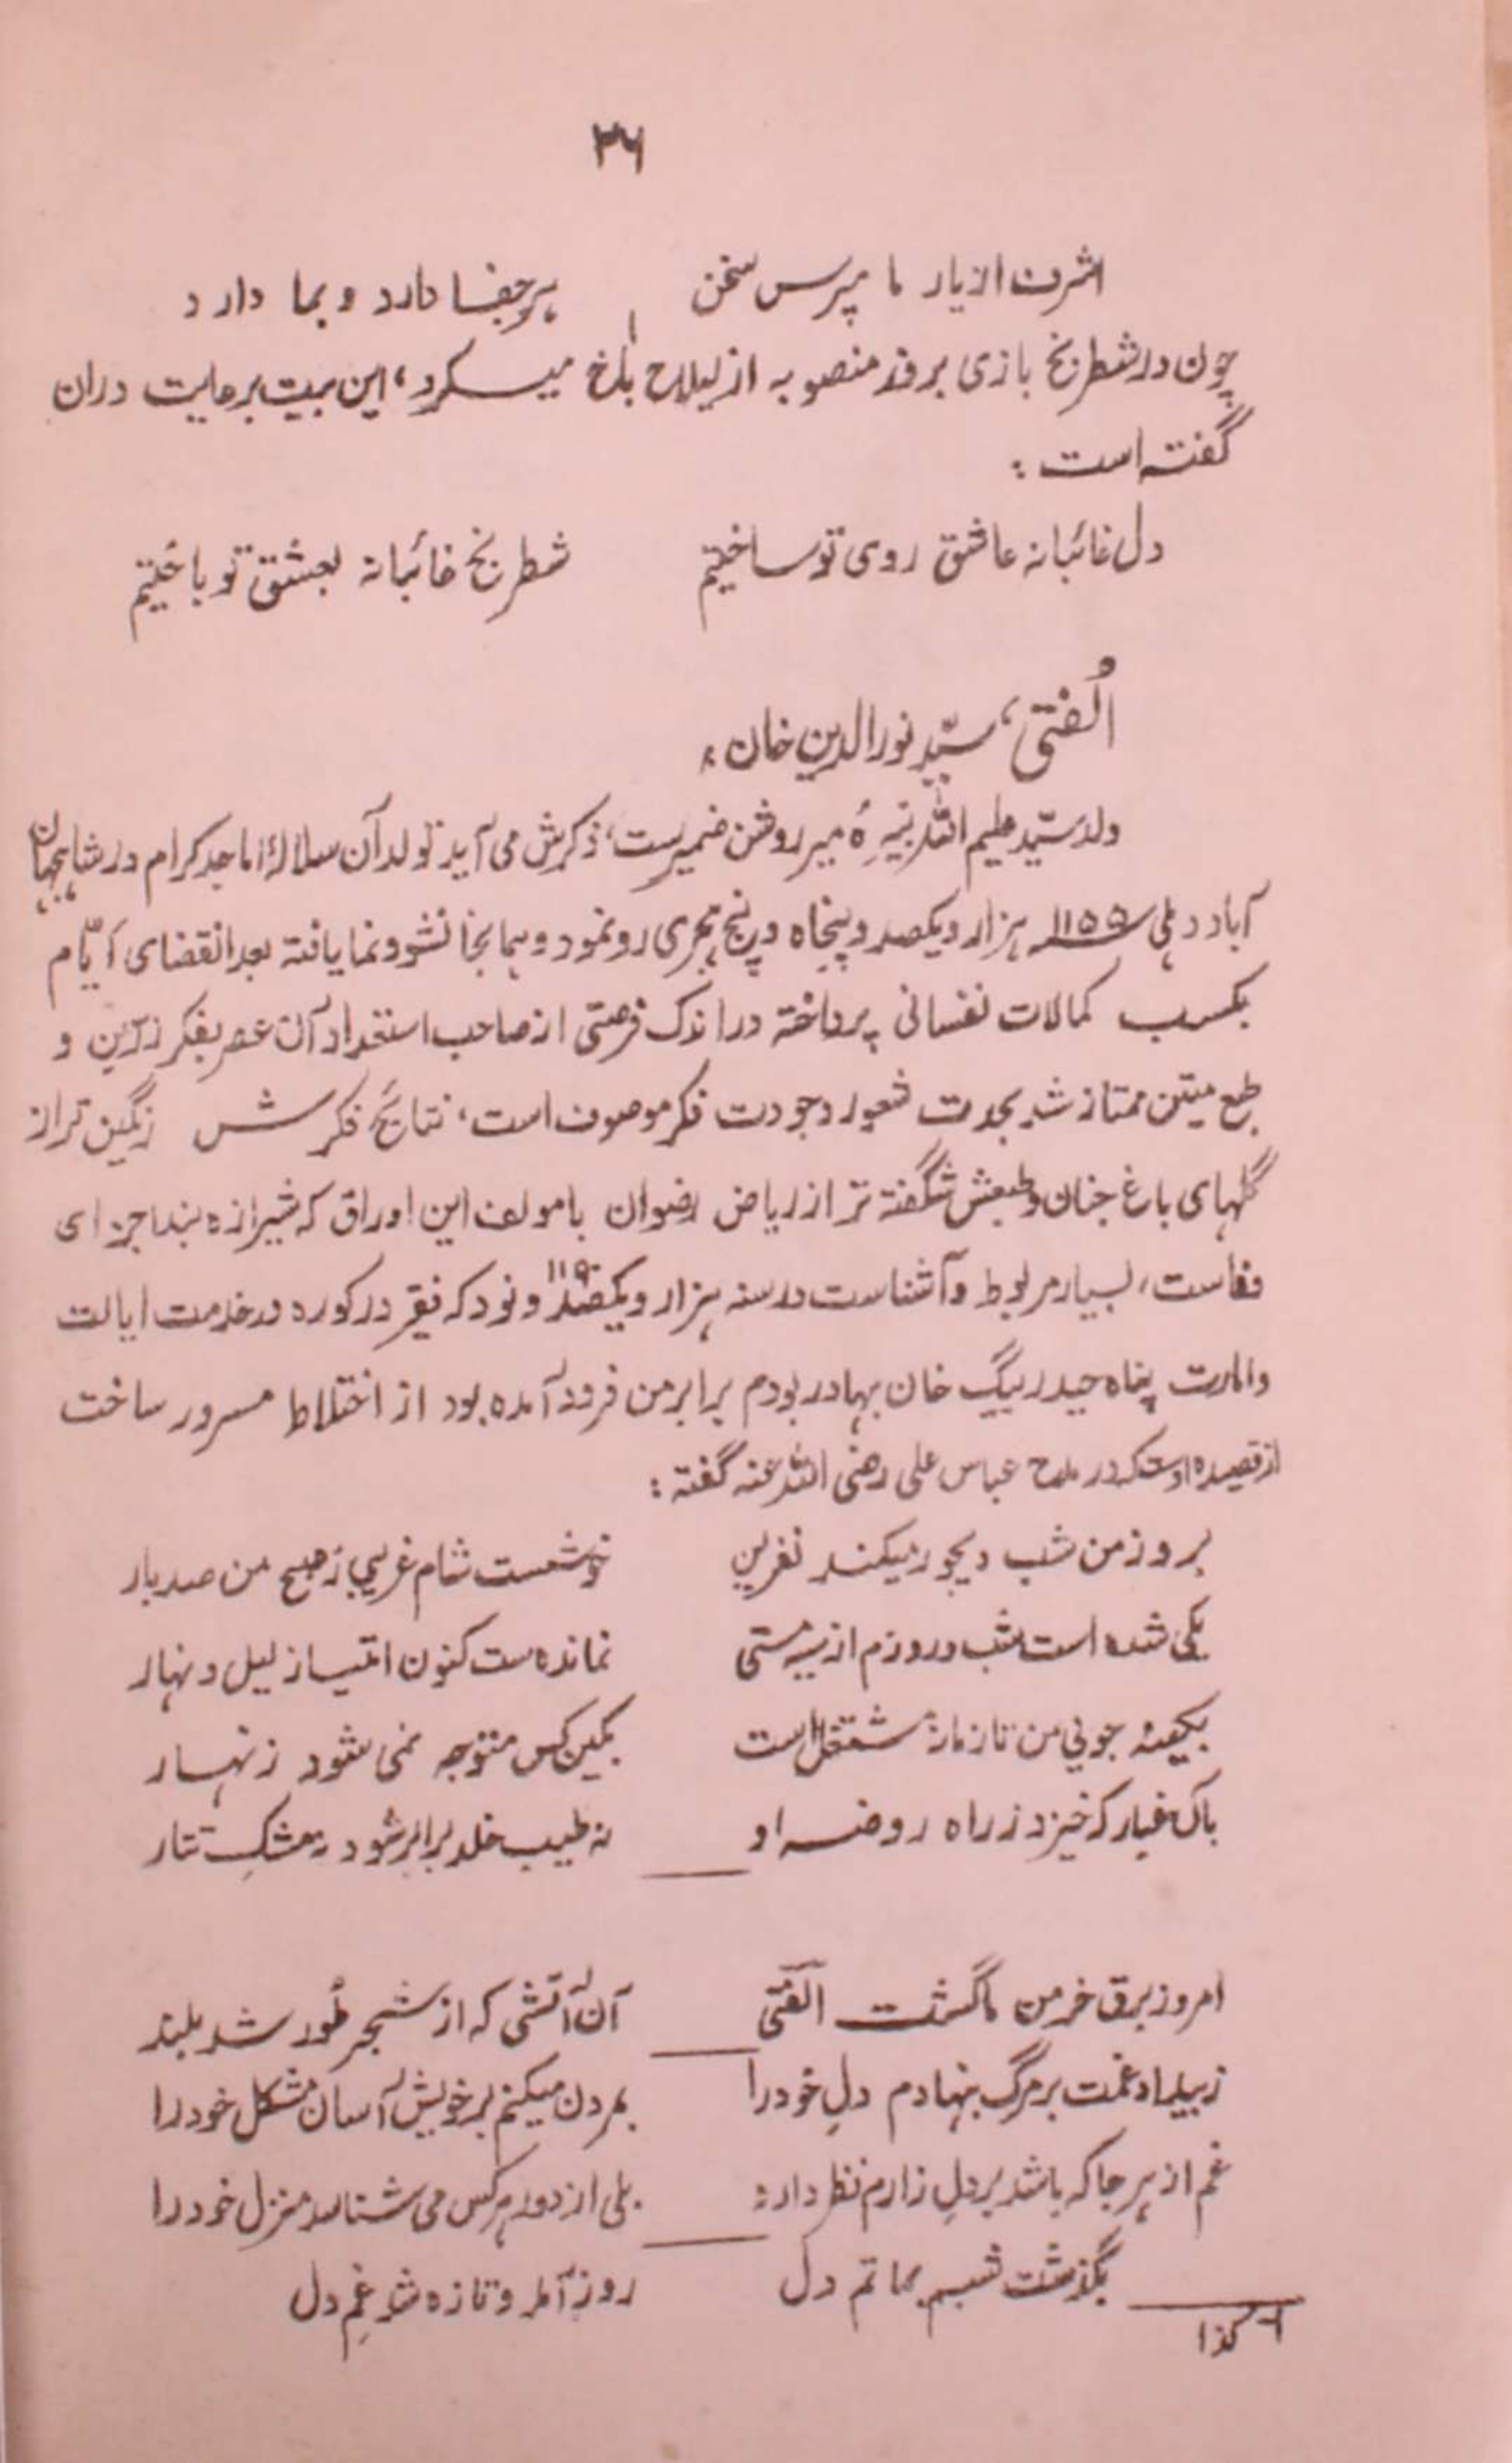 ۳۶
اشرف از یار ما مپرس سخن هر جفا دارد و بما دارد
چون در شطرنج بازی بر فند منصوبه از لیلاج بلخ ۱ میکرد، این بیت برعایت دران
گفته است :
دل غائبانه عاشق روی تو ساختیم شطرنج غائبانه بعشق تو باختیم
اُلفتی، سیّد نورالدین خان :
ولد سیّد علیم الله نبیرهٔ میر روشن ضمیرست، ذکرش می آید تولد آن سلالهٔ اماجد کرام در شاهجهان
آباد دهلی سنه ۱۱۵۵ هزار و یکصد و پنجاه و پنج هجری رو نمود و همانجا نشو و نما یافته بعد انقضای ایّام
بکسب کمالات نفسانی پرداخته در اندک فرصتی از صاحب استعداد آن عصر بفکر رزین و
طبع متین ممتاز شد بحدت شعور و جودت فکر موصوف است، نتائج فکرش رنگین تر از
گلهای باغ جنان و طبعش شگفته تر از ریاض رضوان با مولف این اوراق که شیرازه بند اجزای
وفاست، بسیار مربوط و آشناست در سنه هزار و یکصد ۱۱۹۰ و نود که فقیر در کوره در خدمت ایالت
و امارت پناه حیدر بیگ خان بهادر بودم برابر من فرود آمده بود از اختلاط مسرور ساخت
از قصیده اوست که در مدح عباس علی رضی الله عنه گفته :
بروز من شب دیجور میکند نفرین خوشست شام غریبی ز صبح من صد بار
یکی شده است شب و روزم از سیه مستی نمانده ست کنون امتیاز لیل و نهار
بکینه جوئی من تا زمانه مشتغل است بکین کس متوجه نمی شود زنهار
بآن غبار که خیزد ز راه روضه او نه طیب خلد برابر شود نه مشک تتار
امروز برق خرمن ما گشت الفتی آن آتشی که از شجر طُور شد بلند
ز بیداد غمت بر مرگ بنهادم دلِ خود را بمردن میکنم بر خویش آسان مشکل خود را
غم از هر جا که باشد بر دلِ زارم نظر دارد بلی از دور هر کس می شناسد منزل خود را
بگذشت شبم بماتم دل روز آمد و تازه شد غمِ دل
۱- کذا